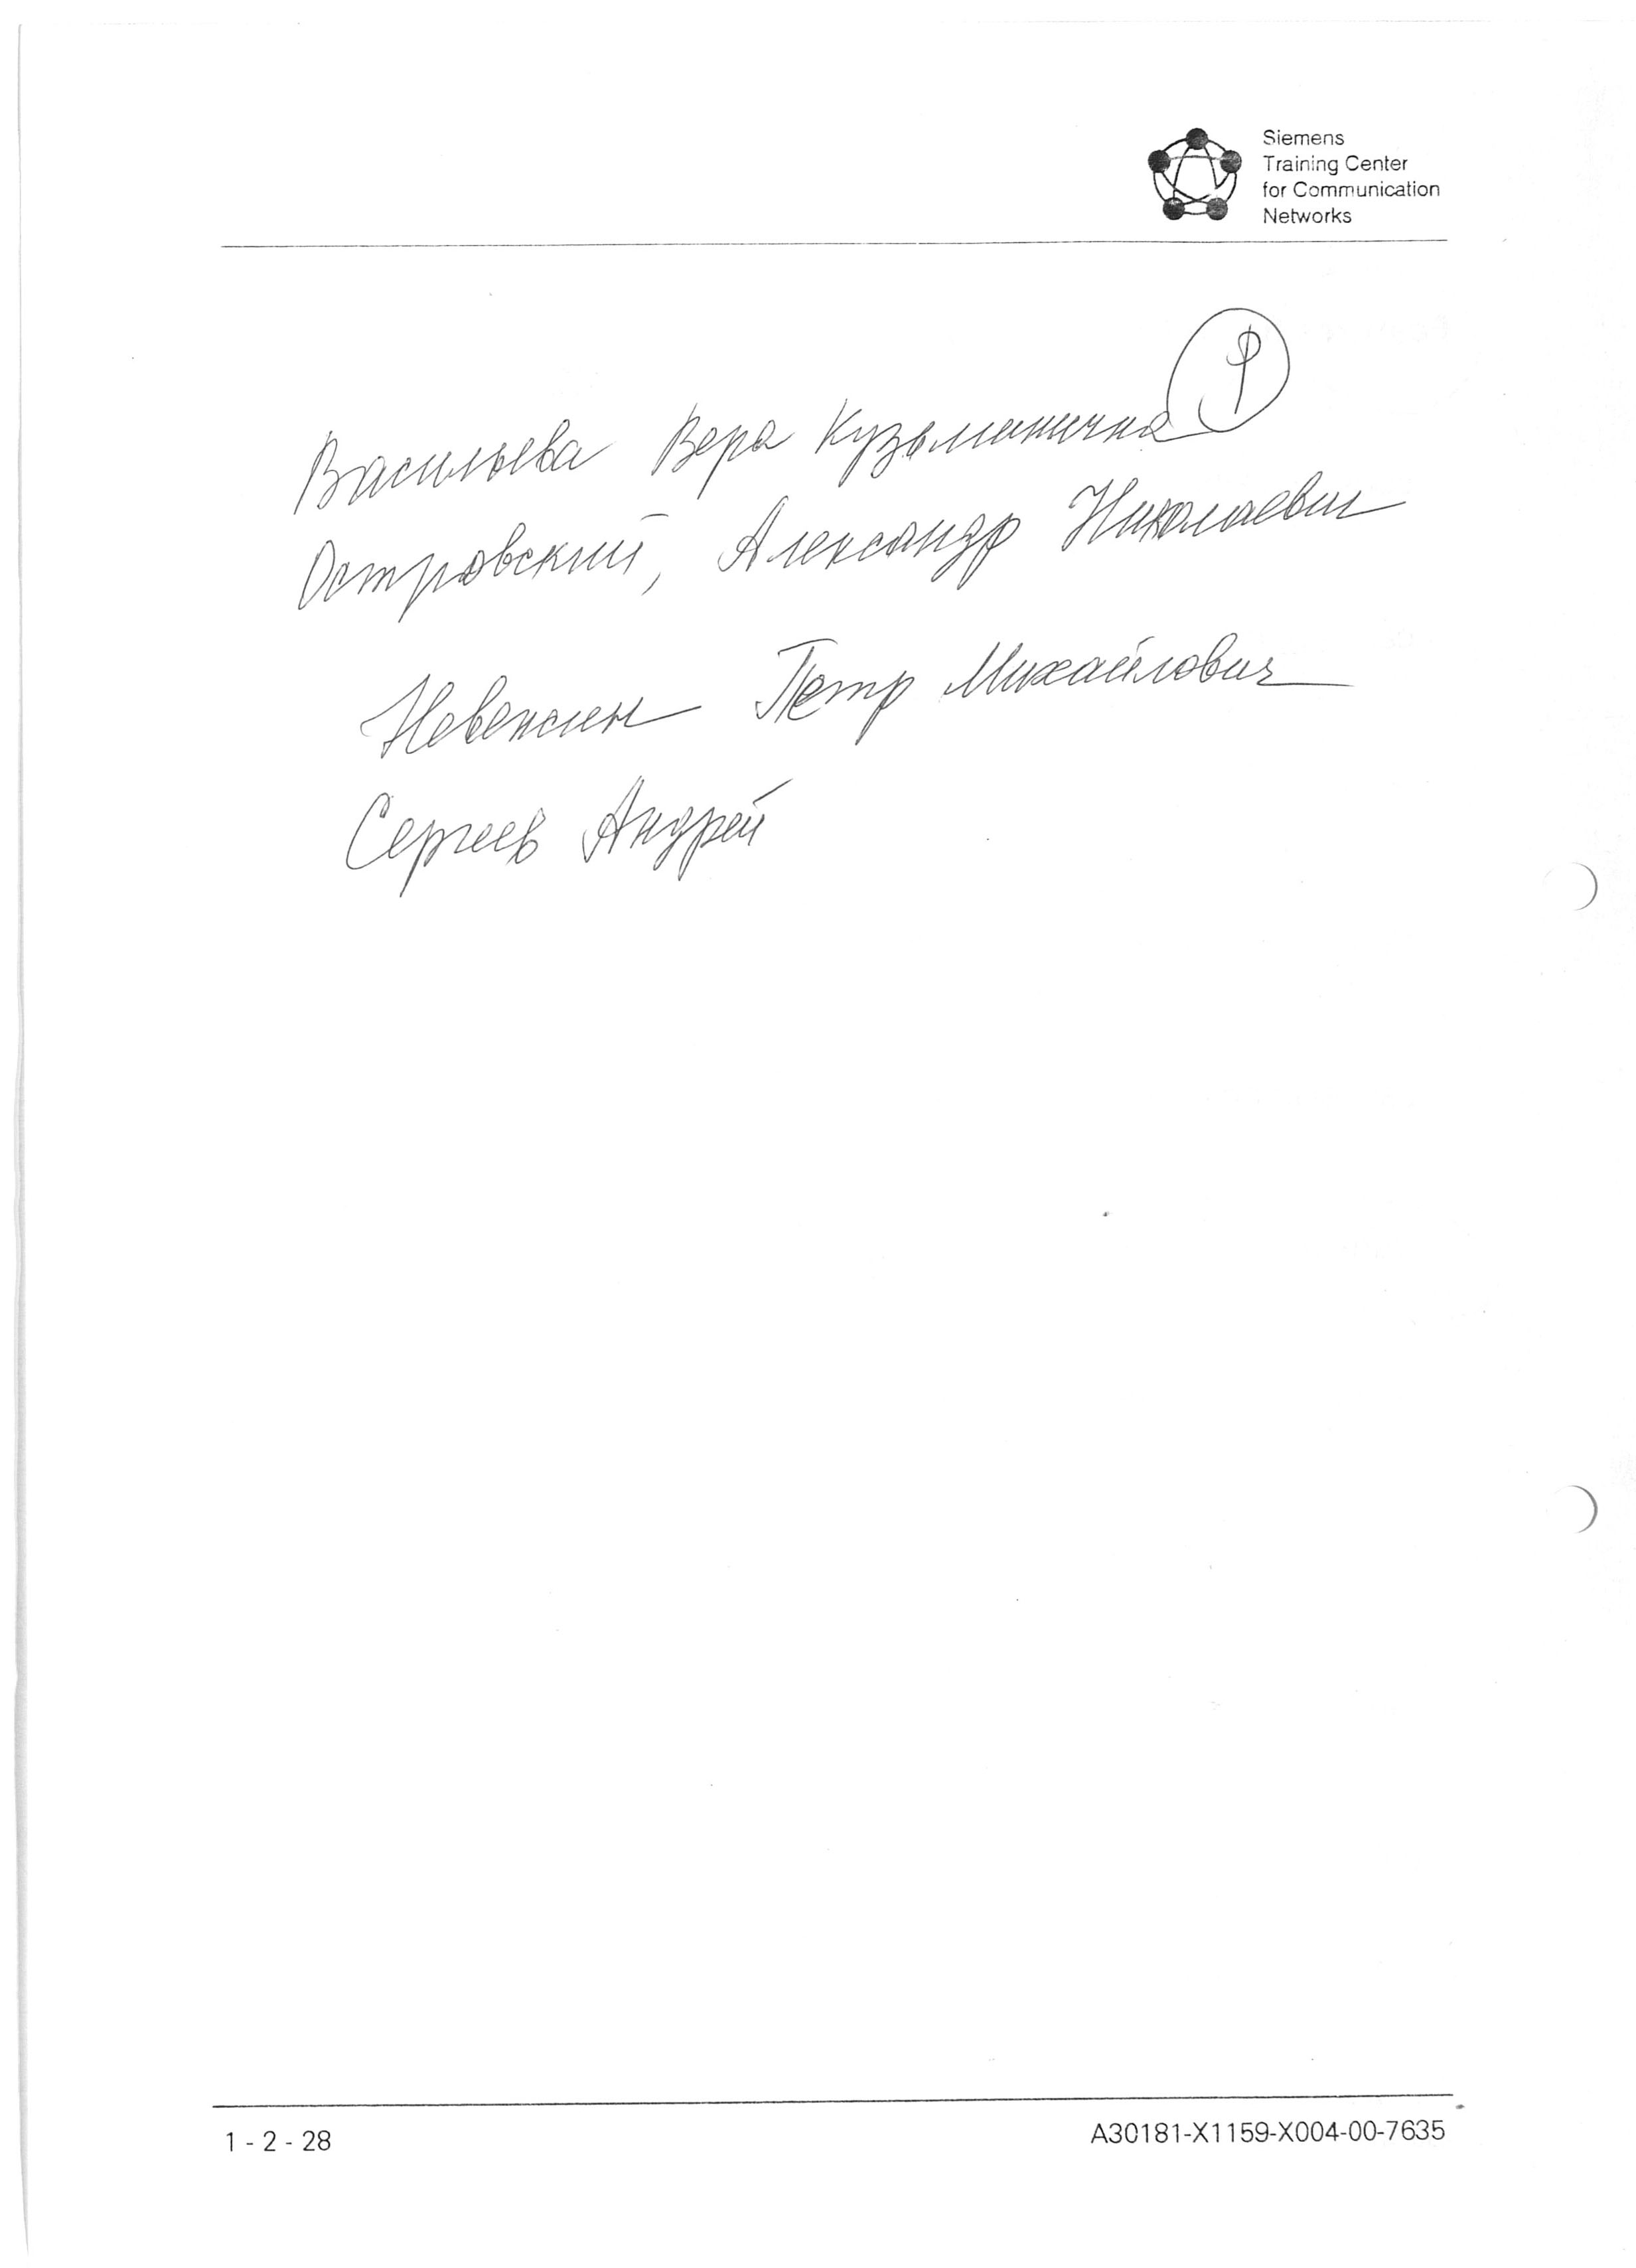 Siemens
Training Center
for Communication
Networks
Васильева Вера Кузьминична
Островский, Александр Николаевич
Петр Михайлович
Сергеев Андрей
1 - 2 - 28
A30181-X1159-X004-00-7635